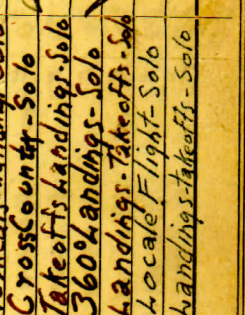 CrossCountry-Solo
Takeoffs Landings-Solo
360° Landings-Solo
Landings-Takeoffs-Solo
Locale Flight-Solo
Landings-takeoffs-Solo